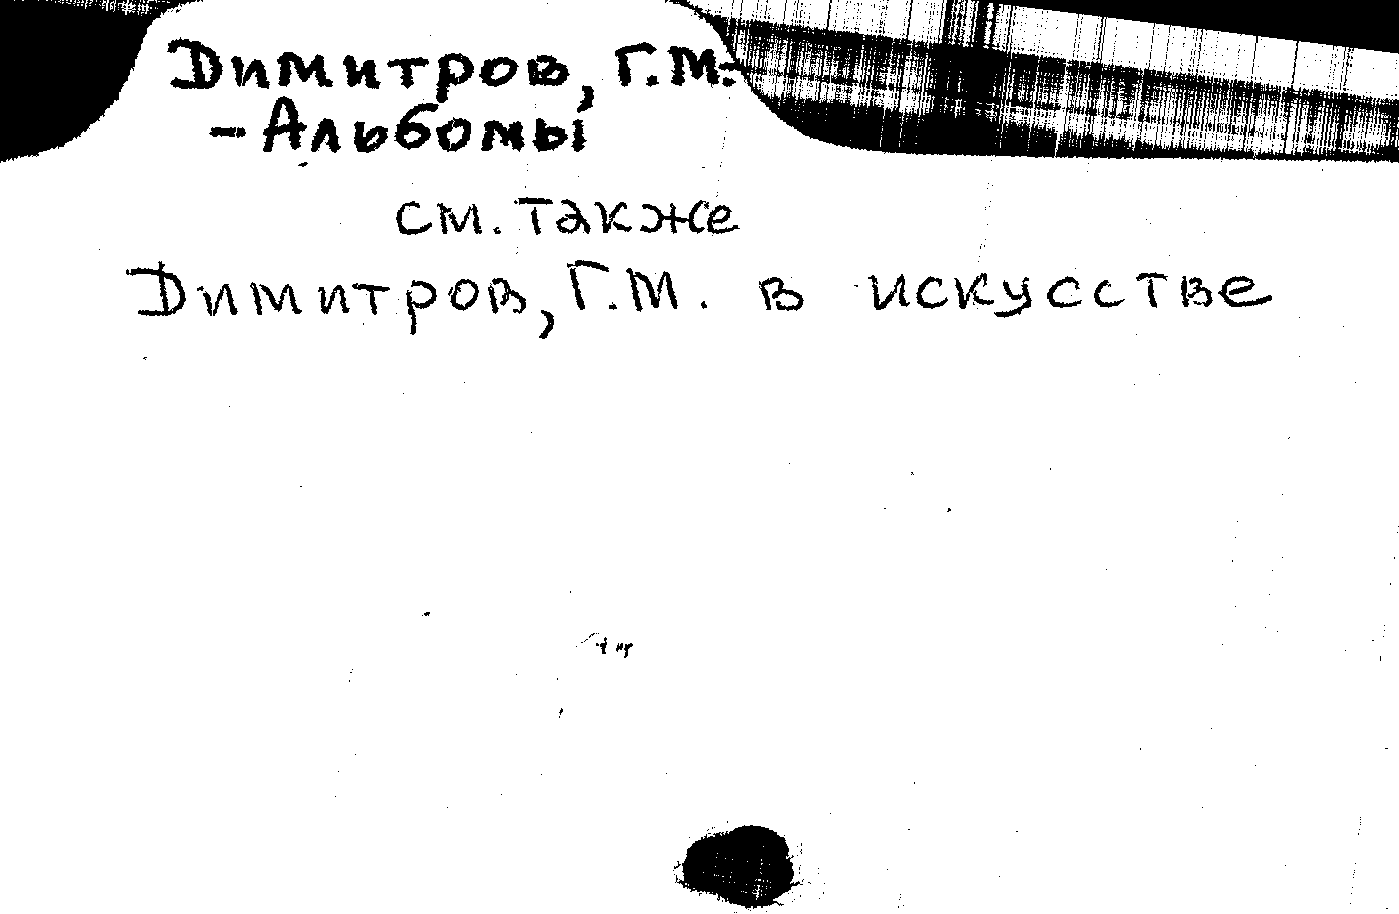 Димитров, Г.М.-
- Альбомы
см. также
Димитров, Г.М. в искусстве